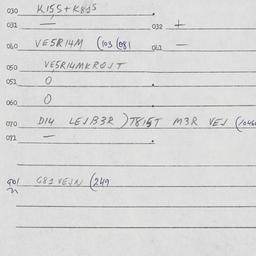 030 K15S+K81S
031 — 032 +
040 VE5R14M (103 (081 041 —
050 VE5R14MKR0JT
051 0
060 0
070 D14 LEJB3R) T815T M3R VEJ
071 —
G81 VEJN (249